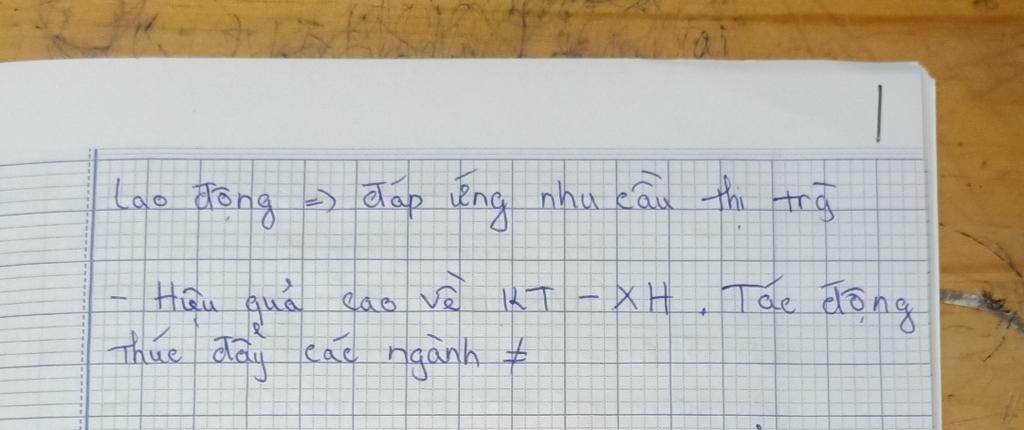 lao động => đáp ứng nhu cầu thị trg̀
- Hiệu quả cao về KT - XH. Tác động
thúc đẩy các ngành ≠